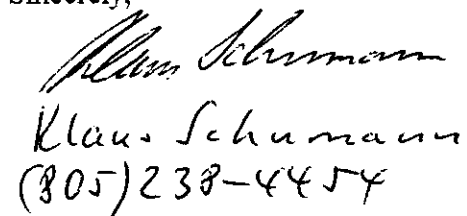 Sincerely,
Klaus Schumann
Klaus Schumann
(805) 238-4454